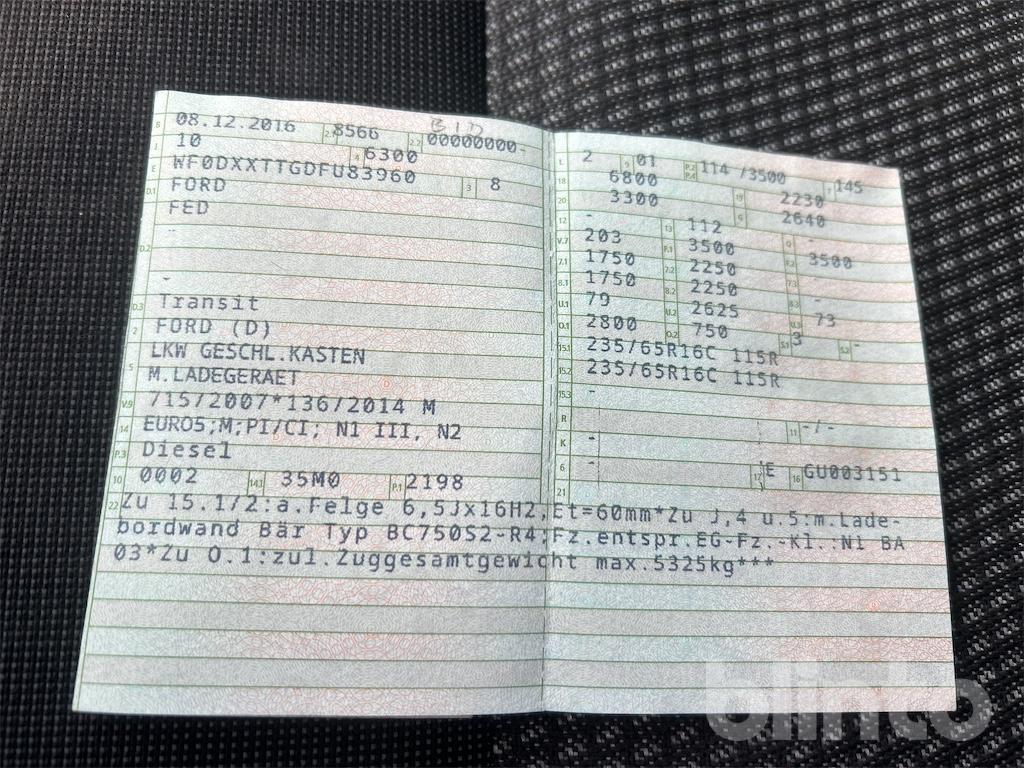 B 08.12.2016 2.1 8566 2.2 00000000-
J 10 4 6300
E WF0DXXTTGDFU83960 3 8
D.1 FORD
FED
D.2 -
-
D.3 Transit
2 FORD (D)
5 LKW GESCHL.KASTEN
M.LADEGERAET
V.9 715/2007*136/2014 M
14 EURO5;M;PI/CI; N1 III, N2
P.3 Diesel
10 0002 14.1 35M0 P.1 2198
L 2 9 01 P.2 P.4 114 /3500 145
18 6800 19 2230
20 3300 G 2640
12 - 13 112 Q -
V.7 203 F.1 3500 F.2 3500
7.1 1750 7.2 2250 7.3
8.1 1750 8.2 2250 8.3 -
U.1 79 U.2 2625 U.3 73
O.1 2800 O.2 750 S.1 3 S.2 -
15.1 235/65R16C 115R
15.2 235/65R16C 115R
15.3 -
R 11 -/-
K -
6 - 17 E 16 GU003151
21
22 Zu 15.1/2:a.Felge 6,5Jx16H2,Et=60mm*Zu J,4 u.5:m.Lade-
bordwand Bär Typ BC750S2-R4:Fz.entspr.EG-Fz.-Kl.:N1 BA
03*Zu O.1:zul.Zuggesamtgewicht max.5325kg***
blinto